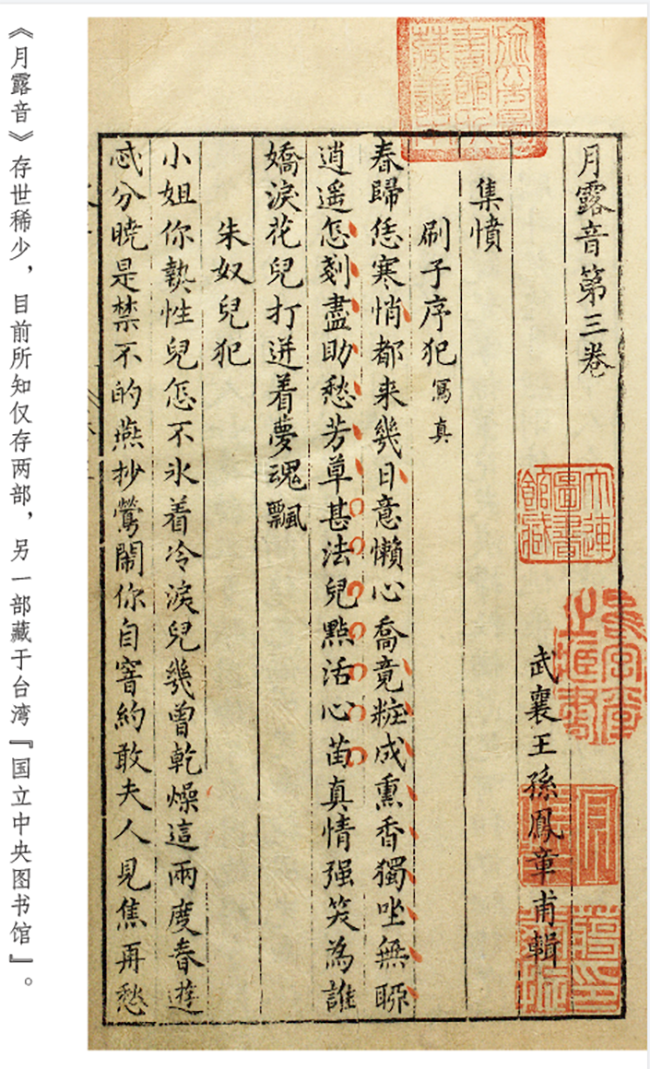 月露音第三卷
武襄王孫鳳章甫輯
集憤
刷子序犯 寫真
春歸恁寒悄都来幾日意懶心喬竟粧成熏香獨坐無聊
逍遥怎剗盡助愁芳草甚法兒點活心苗真情强笑為誰
嬌淚花兒打迸着夢魂飄
朱奴兒犯
小姐你熱性兒怎不氷着冷淚兒幾曾乾燥這兩度春遊
忒分曉是禁不的燕抄鶯閙你自窨約敢夫人見焦再愁
大連圖書館藏
《月露音》存世稀少，目前所知仅存两部，另一部藏于台湾『国立中央图书馆』。